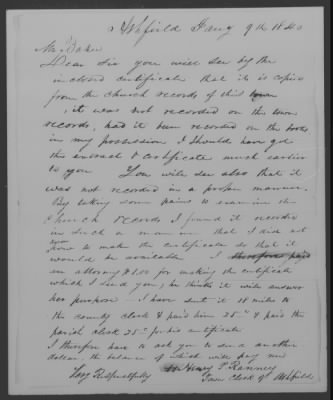 Ashfield Jany 9th 1840
Mr. Baker
Dear Sir you will see by the
inclosed certificate that it is copied
from the church records of this town
, it was not recorded on the town
records, had it been recorded on the books
in my possession I should have got
this extract & certificate much earlier
to you You will see also that it
was not recorded in a proper manner.
By taking some pains to examine the
Church records I found it recorded
in such a manner that I did not
know how to make the certificate so that it
would be available I therefore paid
an attorney $1.00 for making the certificate
which I send you, he thinks it will answer
her purpose I have sent it 18 miles to
the county clerk & paid him 25cts & paid the
parish clerk 25cts for his certificate
I therefore have to ask you to send another
dollar the balance of which will pay me
Very Respectfully Henry P. Ranney
Town Clerk of Ashfield